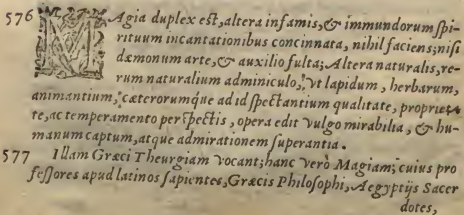 576 MAgia duplex est, altera infamis, & immundorum spi-
rituum incantationibus concinnata, nihil faciens, nisi
dæmonum arte, & auxilio fulta; Altera naturalis, re-
rum naturalium adminiculo, vt lapidum, herbarum,
animantium, cæterorumque ad id spectantium qualitate, proprieta
te, ac temperamento perspectis, opera edit vulgo mirabilia, & hu-
manum captum, atque admirationem superantia.
577 Illam Græci Theurgiam vocant; hanc verò Magiam; cuius pro
fessores apud latinos sapientes, Græcis Philosophi, Aegyptijs Sacer
dotes,